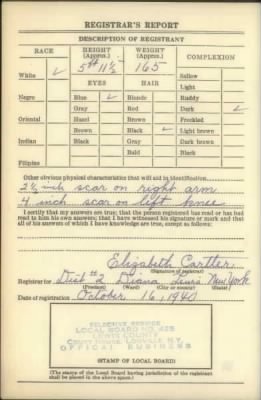 REGISTRAR'S REPORT
DESCRIPTION OF REGISTRANT
RACE HEIGHT (Approx.) WEIGHT (Approx.) COMPLEXION
5 ft 11½ 165
White ✓ Sallow
EYES HAIR Light
Negro Blue ✓ Blonde Ruddy
Gray Red Dark ✓
Oriental Hazel Brown Freckled
Brown Black ✓ Light brown
Indian Black Gray Dark brown
Bald Black
Filipino
Other obvious physical characteristics that will aid in identification
2½ inch scar on right arm
4 inch scar on left knee
I certify that my answers are true; that the person registered has read or has had
read to him his own answers; that I have witnessed his signature or mark and that
all of his answers of which I have knowledge are true, except as follows:
Elizabeth Cartter
(Signature of registrar)
Registrar for Dist #2 Diana Lewis New York
(Precinct) (Ward) (City or county) (State)
Date of registration October 16, 1940
SELECTIVE SERVICE
LOCAL BOARD NO. 425
LEWIS COUNTY
COURT HOUSE, LOWVILLE, N.Y.
OFFICIAL BUSINESS
(STAMP OF LOCAL BOARD)
(The stamp of the Local Board having jurisdiction of the registrant
shall be placed in the above space.)